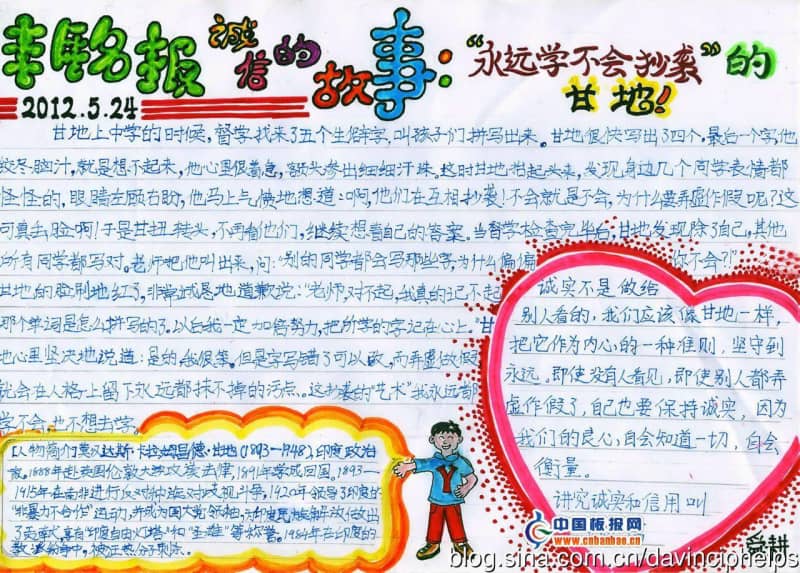 丰路报
诚信的
故事：
“永远学不会抄袭”的
甘地！
2012.5.24
甘地上中学的时候，督学找来了五个生僻字，叫孩子们拼写出来。甘地很快写出了四个，最后一个字，他
绞尽脑汁，就是想不起来，他心里很着急，额头参出细细汗珠。这时甘地抬起头来，发现身边几个同学表情都
怪怪的，眼睛左顾右盼，他马上气愤地想道：啊，他们在互相抄袭！不会就是不会，为什么要弄虚作假呢？这
可真丢脸啊！于是甘扭转头，不再看他们，继续想着自己的答案。当督学检查完毕后，甘地发现除了自己，其他
所有同学都写对。老师吧他叫出来，问：“别的同学都会写那些字，为什么偏偏你不会？”
甘地的脸刷地红了，非常诚恳地道歉说：“老师，对不起，我真的记不起
那个单词是怎么拼写的了。以后我一定加倍努力，把所学的字记在心上。”甘
地心里坚决地说道：是的，我很笨。但是字写错了可以改，而弄虚作假
就会在人格上留下永远都抹不掉的污点。这抄袭的“艺术”我永远都
学不会，也不想去学。
诚实不是做给
别人看的，我们应该像甘地一样，
把它作为内心的一种准则，坚守到
永远。即使没有人看见，即使别人都弄
虚作假了，自己也要保持诚实，因为
我们的良心，自会知道一切，自会
衡量。
讲究诚实和信用叫
人物简介：莫汉达斯·卡拉姆昌德·甘地
印度政治
家。1888年赴英国伦敦大学攻读法律，1891年学成回国。1893—
1915年在南非进行反对种族对歧视斗争，1920年领导了印度的
“非暴力不合作”运动，并成为国大党领袖，为印度民族解放做出
了贡献，享有“印度自由灯塔”和“圣雄”等称誉。
在印度的
教派纷争中，被
分子刺杀。
中国板报网
www.cnbanbao.cn
blog.sina.com.cn/davinciphelps